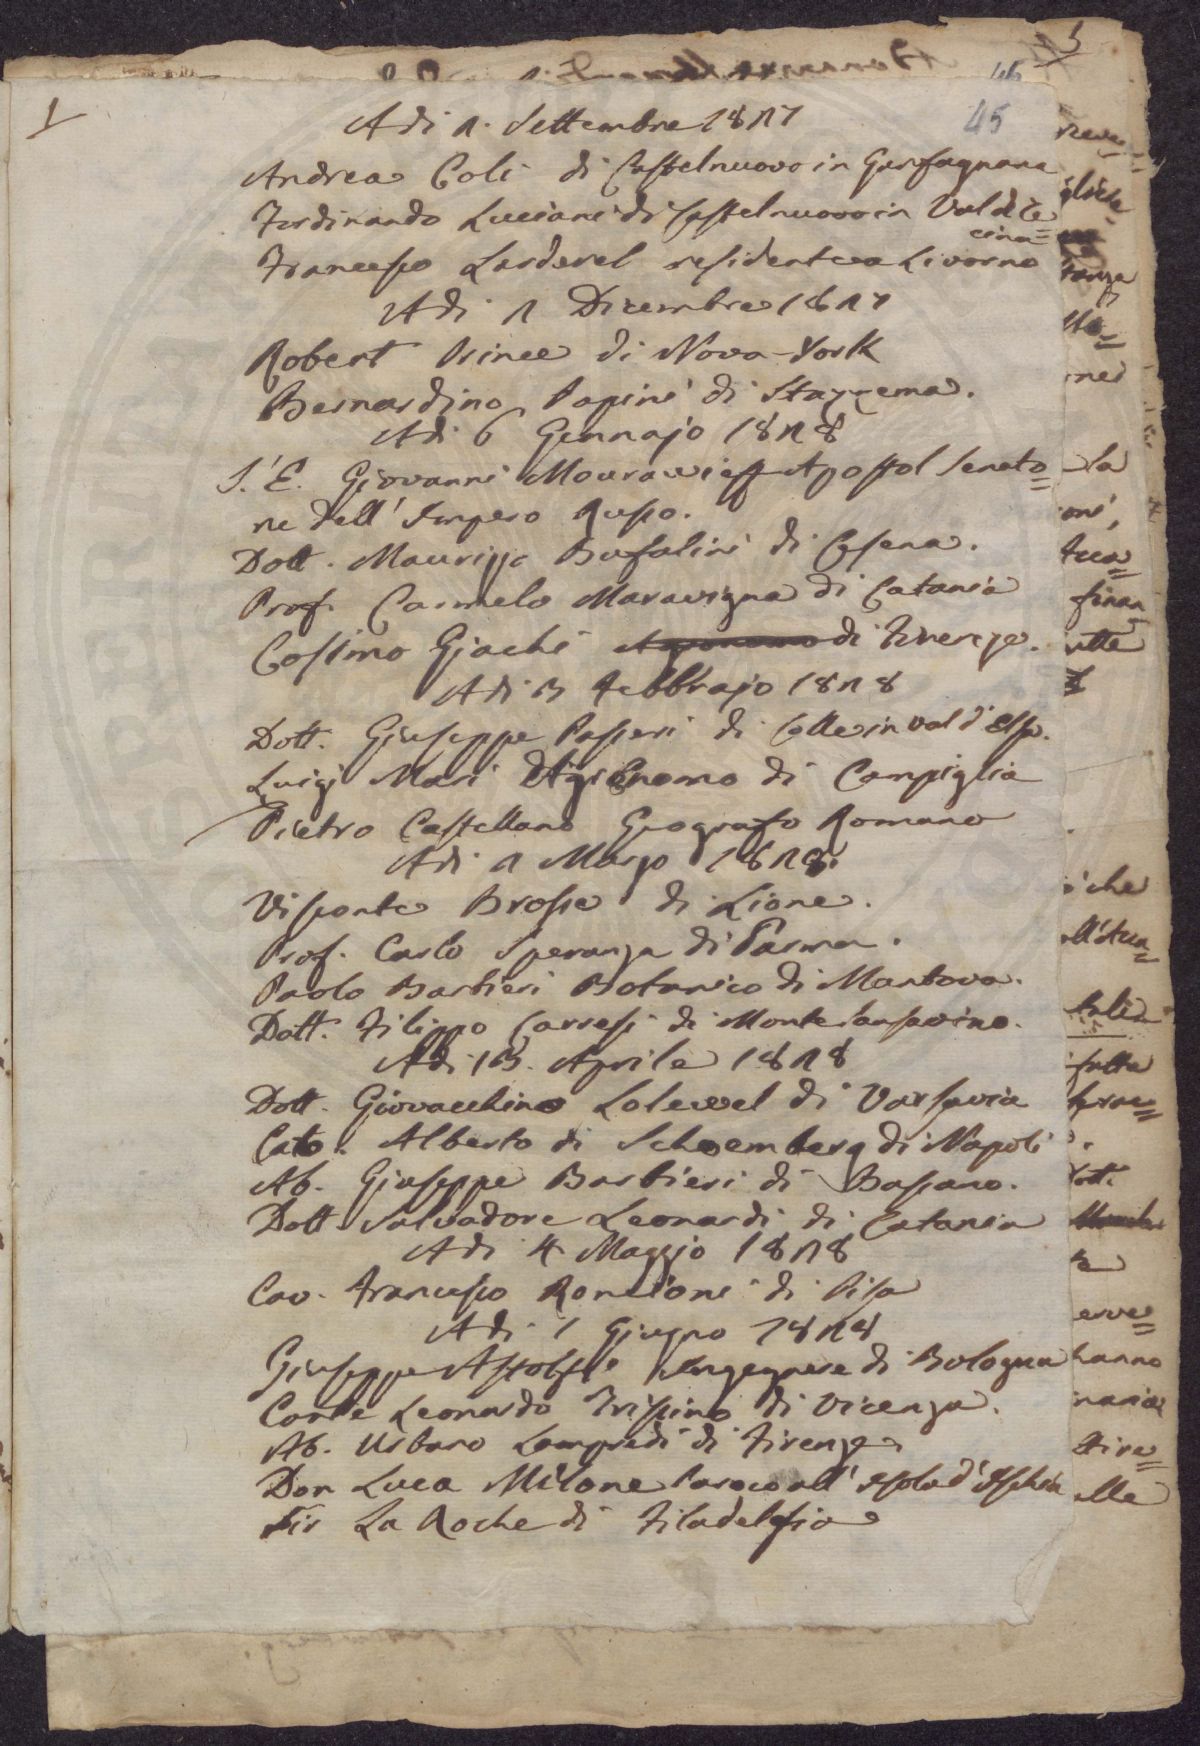 1
45
Adi 2. Settembre 1827
Andrea Coli di Castelnuovo in Garfagnana
Ferdinando Luciani di Castelnuovo in Val di Ce=
cina=
Francesco Larderel residente a Livorno
Adi 2 Dicembre 1827
Robert Prince di Nova-York
Bernardino Papini di Stazzema.
Adi 6 Gennajo 1828
S. E. Giovanni Mourawieff Apostol Senato=
re dell'Impero Russo.
Dott. Maurizio Bufalini di Cesena.
Prof. Carmelo Maravigna di Catania
Cosimo Giachi Agronomo di Firenze.
Adi 3 Febbrajo 1828
Dott. Giuseppe Passeri di Colle in val d'Elsa.
Luigi Masi Agronomo di Campiglia
Pietro Castellano Geografo Romano
Adi 2 Marzo 1828.
Visconte Brosse di Lione.
Prof. Carlo Speranza di Parma.
Paolo Barbieri Botanico di Mantova.
Dott. Filippo Carresi di Monte Sansavino.
Adi 13. Aprile 1828
Dott. Giovacchino Lelewel di Varsavia
Cav. Alberto di Schoemberg di Napoli
Ab. Giuseppe Barbieri di Bassano.
Dott. Salvadore Leonardi di Catania
Adi 4 Maggio 1828
Cav. Francesco Roncioni di Pisa
Adi 1 Giugno 1828
Giuseppe Astolfi Ingegnere di Bologna
Conte Leonardo Trissino di Vicenza.
Ab. Urbano Lampredi di Firenze
Don Luca Milone Paroco all'Isola d'Ischia
Sir La Roche di Filadelfia